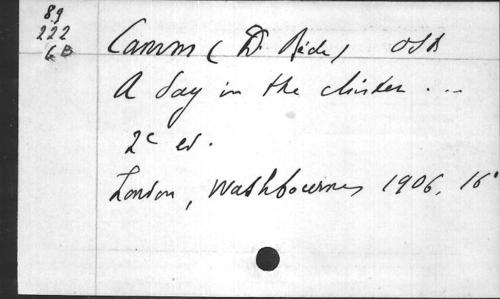 89
222
6 B
Camm ( D. Bede) OSB
A day in the cloister . ..
2e ed.
London, Washbourne, 1906, 16°